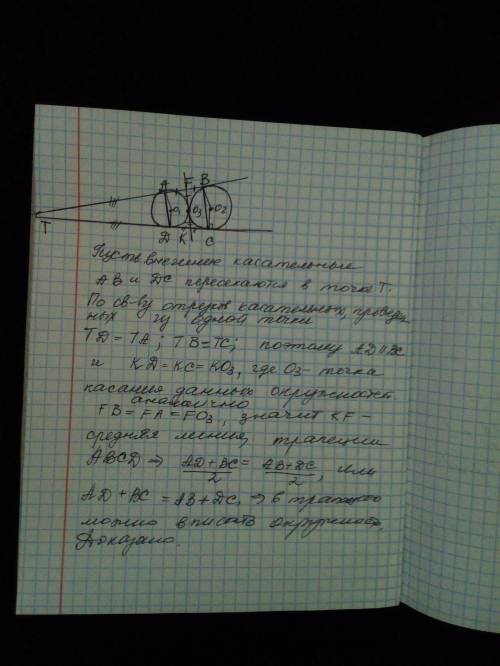 A F B
O₁ O₃ O₂
T D K C
Пусть внешние касательные
AB и DC пересекаются в точке T.
По св-ву отрезков касательных, проведён-
ных из одной точки
TD = TA; TB = TC; поэтому AD || BC
и KD = KC = KO₃, где O₃ - точка
касания данных окружност.
аналогично
FB = FA = FO₃, значит KF -
средняя линия трапеции
ABCD ⇒ (AD + BC)/2 = (AB + DC)/2, или
AD + BC = AB + DC, ⇒ в трапецию
можно вписать окружность.
Доказано.